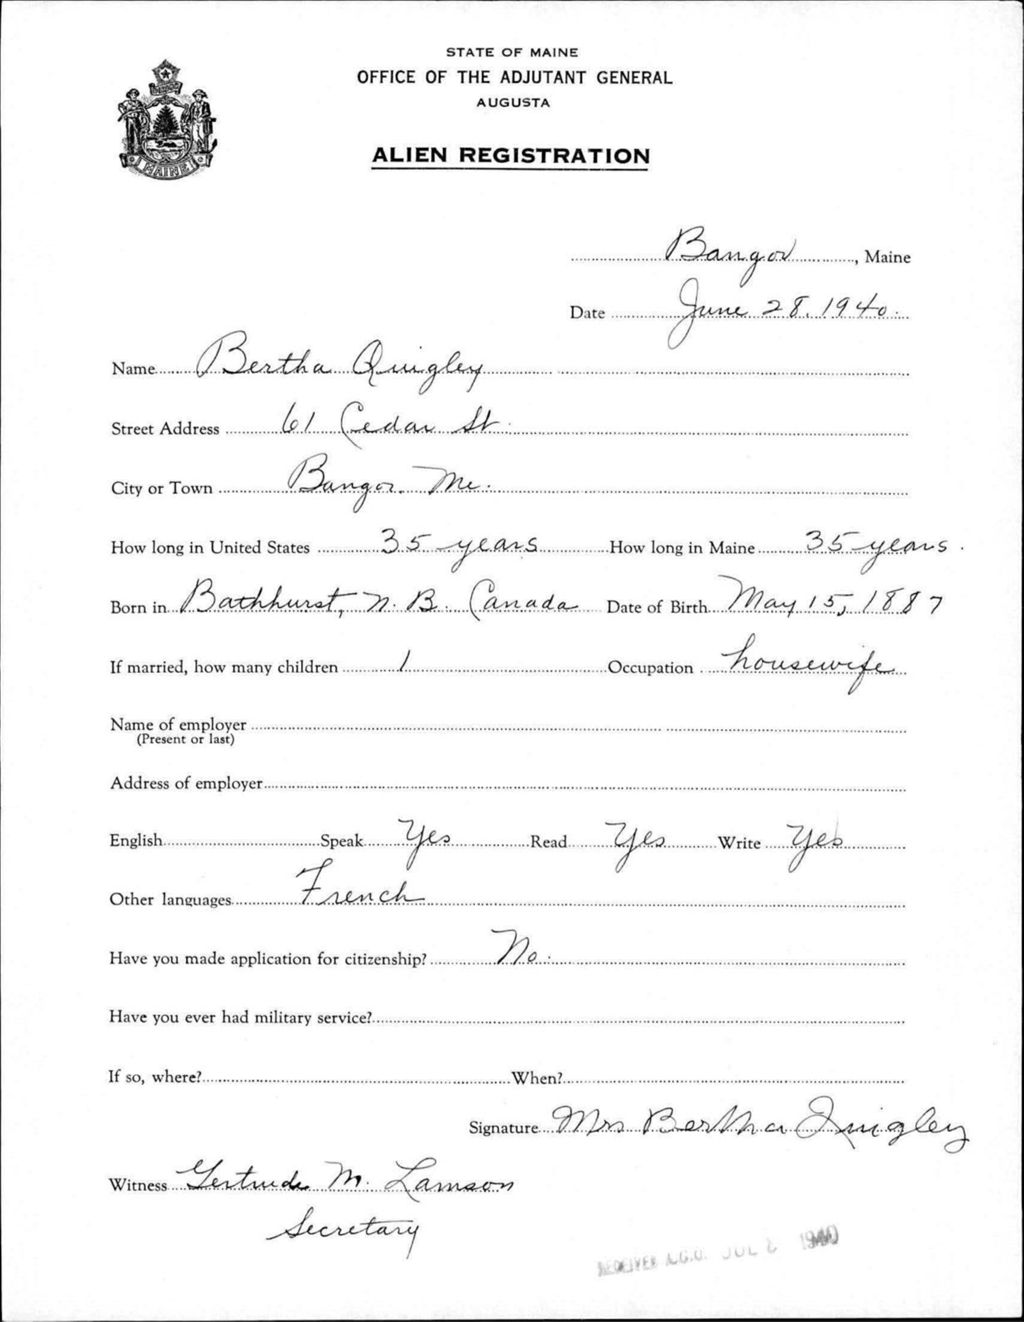 STATE OF MAINE
OFFICE OF THE ADJUTANT GENERAL
AUGUSTA
ALIEN REGISTRATION
MAINE
Bangor, Maine
Date June 28, 1940.
Name Bertha Quigley
Street Address 61 Cedar St.
City or Town Bangor, Me.
How long in United States 35 years How long in Maine 35 years.
Born in Bathhurst, N. B. Canada Date of Birth May 15, 1887
If married, how many children 1 Occupation housewife
Name of employer
(Present or last)
Address of employer
English Speak Yes Read Yes Write Yes
Other languages French
Have you made application for citizenship? No.
Have you ever had military service?
If so, where? When?
Signature Mrs Bertha Quigley
Witness Gertrude M. Lamson
Secretary
RECEIVED A.G.O. JUL 2 1940